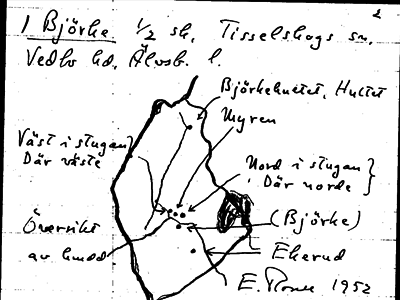 2
1 Björke 1/2 sk, Tisselskogs sn,
Vedbo hd, Älvsb. l.
Björkehuttet, Huttet
Myren
Väst i stugan
Där väste
Nord i stugan
Där norde
(Björke)
Översikt
av
Ekerud
E. 1952